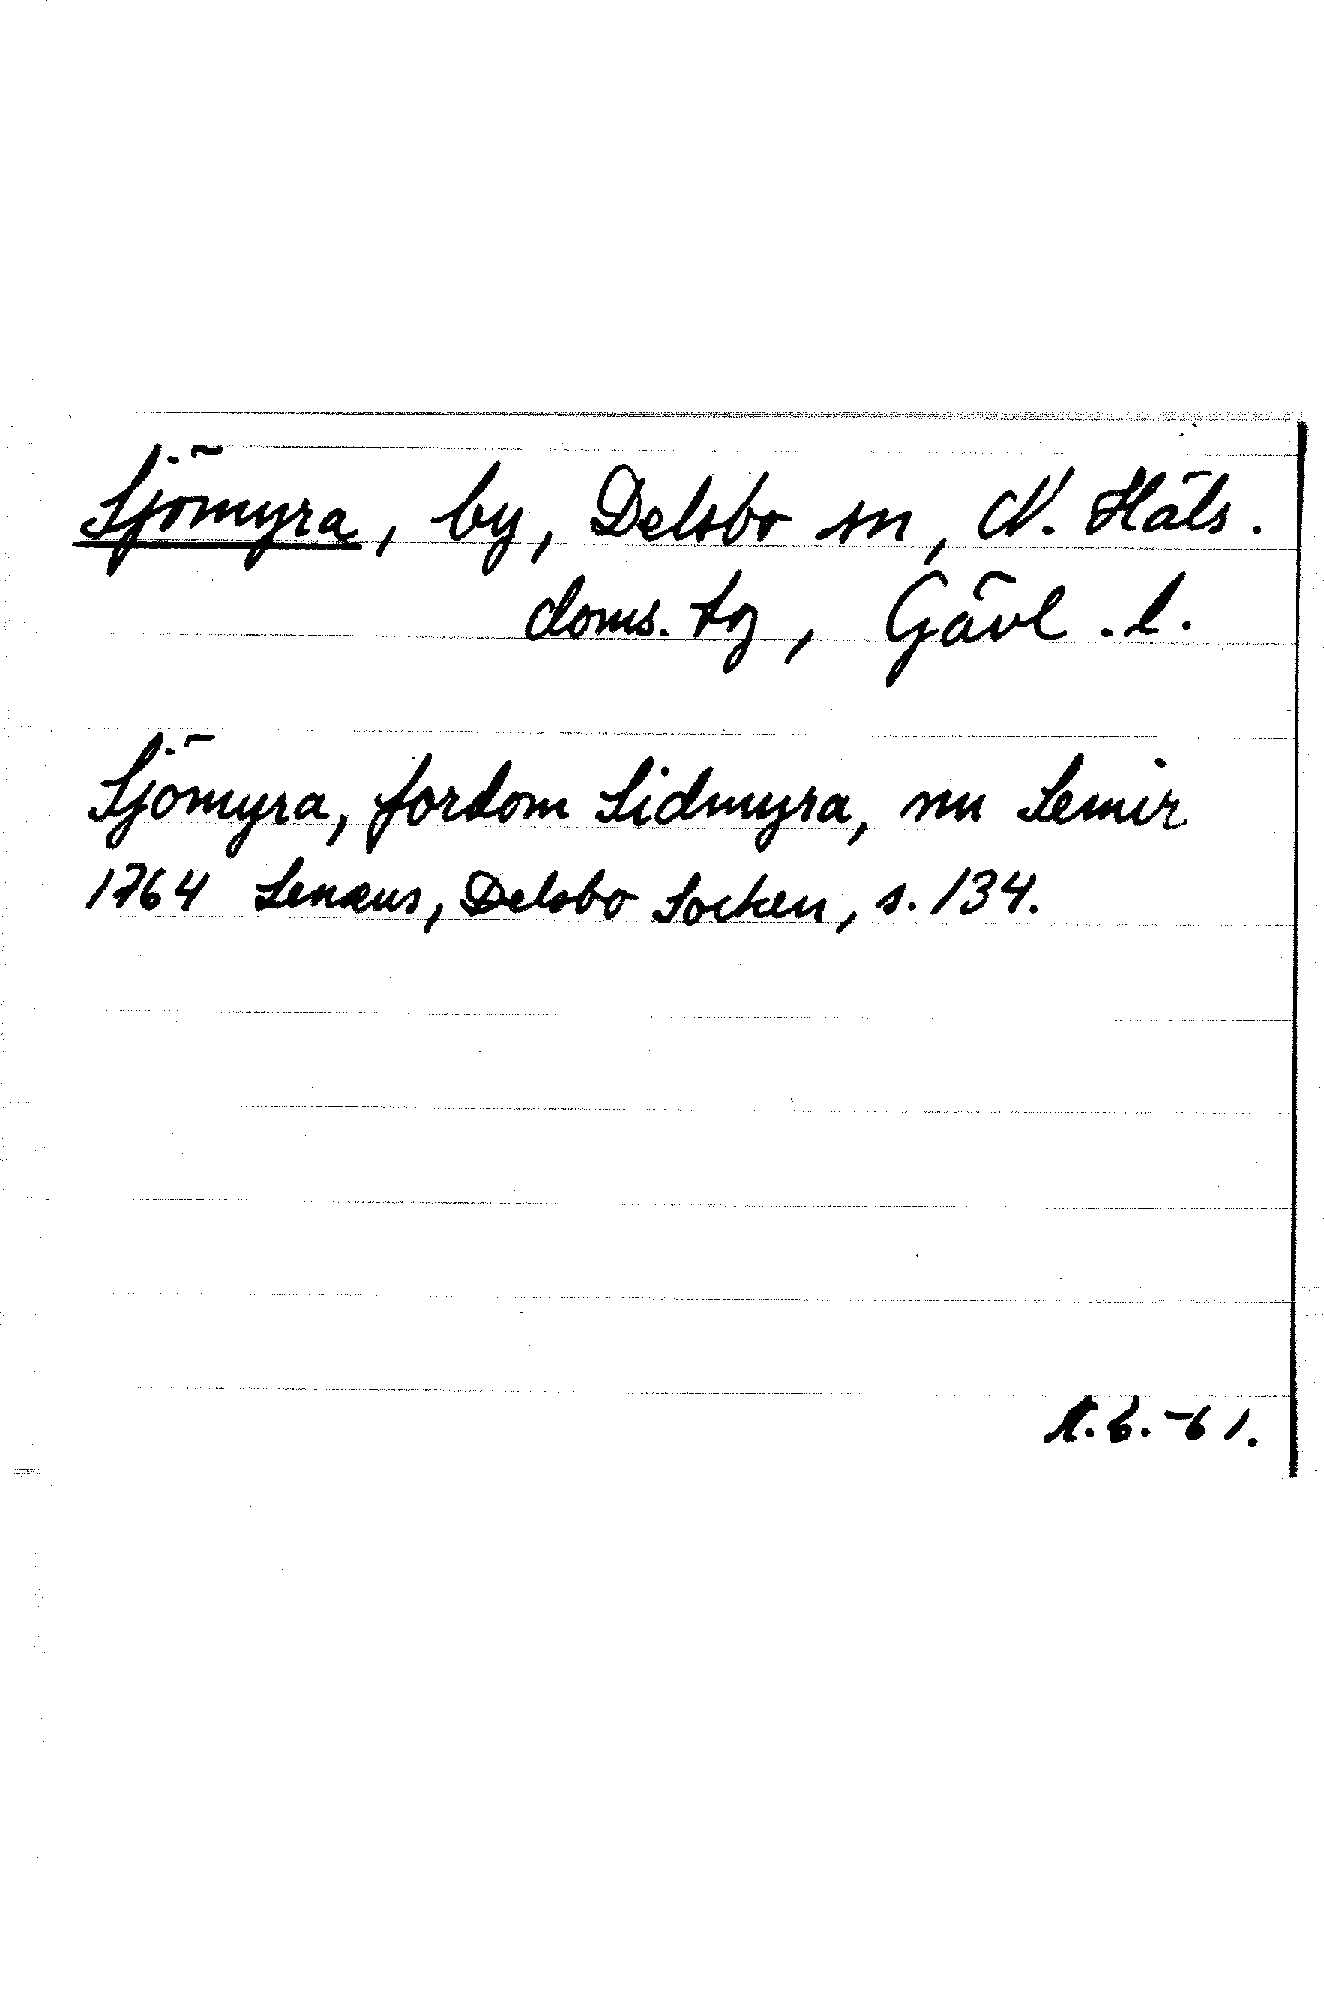 Sjömyra, by, Delsbo sn, N. Häls.
doms. tg, Gävl. l.
Sjömyra, fordom Sidmyra, nu Semir
1764 Lenæus, Delsbo Socken, s. 134.
-61.